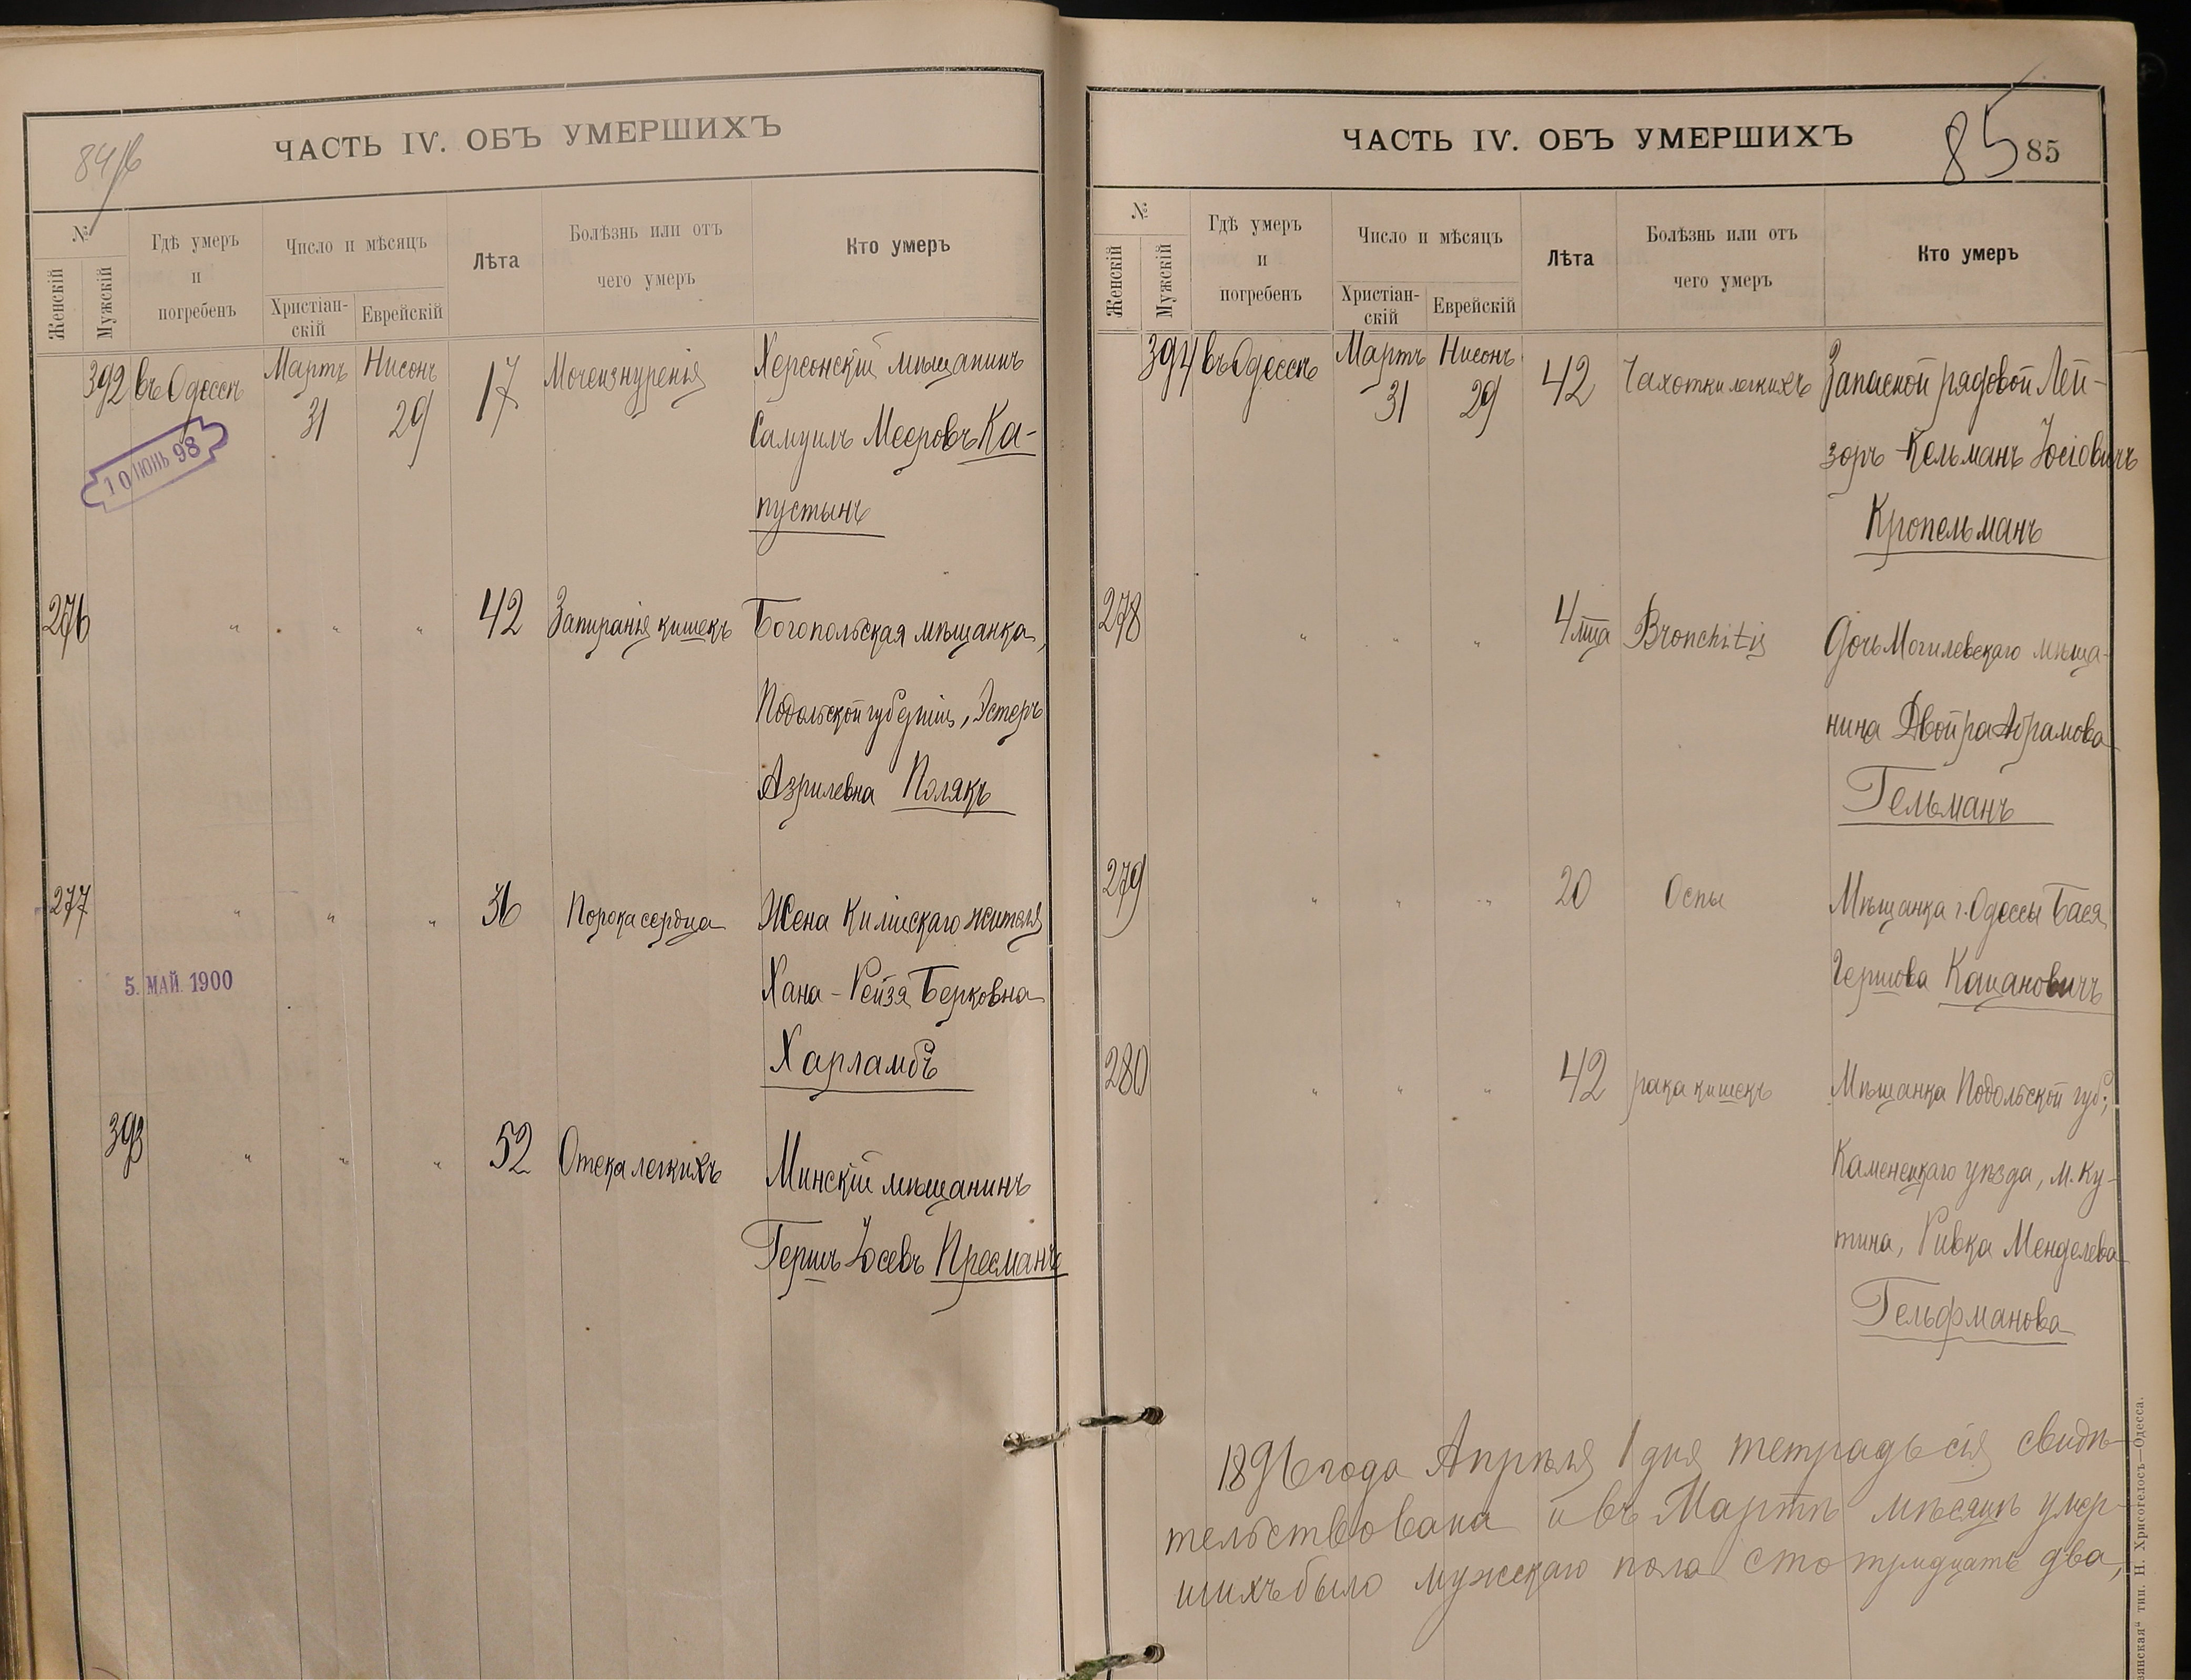 84/б
ЧАСТЬ IV. ОБЪ УМЕРШИХЪ
№
Женскій
Мужскій
Гдѣ умеръ
и
погребенъ
Число и мѣсяцъ
Христіан-
скій
Еврейскій
Лѣта
Болѣзнь или отъ
чего умеръ
Кто умеръ
392 въ Одессѣ Мартъ 31 Нисонъ 29 17 Мочеизнуренія Херсонскій мѣщанинъ
Самуилъ Мееровъ Ка-
пустынъ
10 ІЮНЬ 98
276 " " " 42 Запиранія кишекъ Богопольская мѣщанка,
Подольской губерніи, Эстеръ
Азрилевна Полякъ
277 " " " 36 Порока сердца Жена Килійскаго жителя
Хана-Рейзя Берковна
Харламбъ
5. МАЙ 1900
393 " " " 52 Отека легкихъ Минскій мѣщанинъ
Гершъ Іосевъ Пресманъ
ЧАСТЬ IV. ОБЪ УМЕРШИХЪ
85 85
№
Женскій
Мужскій
Гдѣ умеръ
и
погребенъ
Число и мѣсяцъ
Христіан-
скій
Еврейскій
Лѣта
Болѣзнь или отъ
чего умеръ
Кто умеръ
394 въ Одессѣ Мартъ 31 Нисонъ 29 42 Чахотки легкихъ Запасной рядовой Лей-
зоръ-Кельманъ Іосіовичъ
Кропельманъ
278 " " " 4 мца Bronchitis Дочь Могилевскаго мѣща-
нина Двойра Абрамова
Гельманъ
279 " " " 20 Оспы Мѣщанка г. Одессы Бася
Гершова Кацановичъ
280 " " " 42 рака кишекъ Мѣщанка Подольской губ;
Каменецкаго уѣзда, м. Ку-
тина, Ривка Менделева
Гельфманова
1896 года Апрѣля 1 дня тетрадь сія свидѣ-
тельствована и въ Мартѣ мѣсяцѣ умер-
шихъ было мужскаго пола сто тридцать два,
тип. Н. Хрисогелосъ—Одесса.